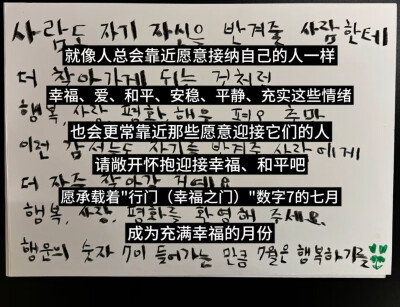 사람도 자기 자신을 반겨줄 사람한테
就像人总会靠近愿意接纳自己的人一样
더 찾아가게 되는 것처럼
幸福、爱、和平、安稳、平静、充实这些情绪
행복, 사랑, 평화
也会更常靠近那些愿意迎接它们的人
이런 사람에게
请敞开怀抱迎接幸福、和平吧
더 자주 찾아갈 거예요
愿承载着"行门（幸福之门）"数字7的七月
행복, 사랑, 평화를 환영해 주세요.
成为充满幸福的月份
행운의 숫자 7이 들어가는 만큼 7월은 행복하기를